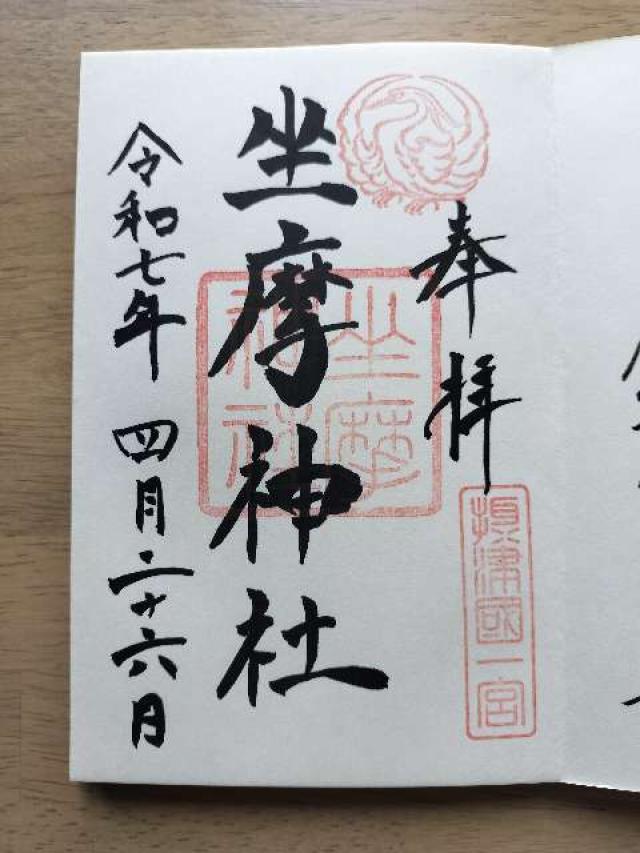 奉拝
摂津國一宮
坐摩神社
坐摩神社
令和七年 四月二十六日